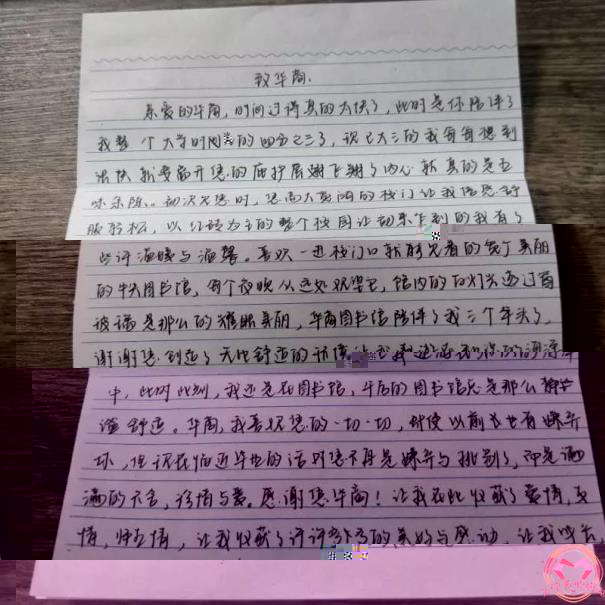 致华商.
亲爱的华商,时间过得真的太快了,此时是你陪伴了
我整个大学时间的四分之三了,说已大三的我每每想到
很快就要离开您的庇护展翅飞翔了内心就真的是五
味杂陈.。初次见您时,您高大宽阔的校门让我倍感舒
服轻松,以红砖为主的整个校园让初来乍到的我有了
些许温暖与温馨。喜欢一进校门口就能见着的宏丁美丽
的牛头图书馆,每个夜晚从远处观望它,馆内的白灯光透过百
玻璃是那么的耀眼美丽,华商图书馆陪伴了我三个年头了,
谢谢您创造了无比舒适的环境让我
中,此时此刻,我还是在图书馆,午后的图书馆总是那么静
谧舒适。华商,我喜欢您的一切一切,即使以前也有嫌弃
坏,但现在临近毕业的话对您不再是嫌弃与挑剔了,而是满
满的不舍,珍惜与爱。感谢您华商!让我在此收获了爱情,友
情,师生情,让我收获了许许多多的美好与感动,让我